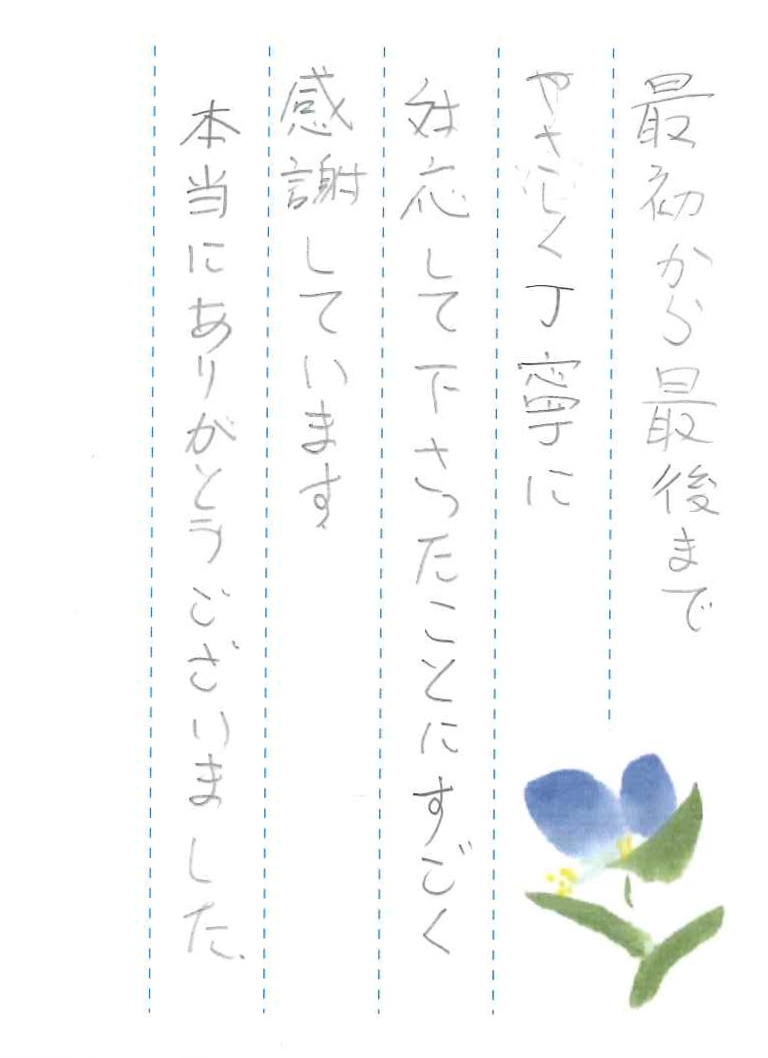 最初から最後まで
やさしく丁寧に
対応して下さったことにすごく
感謝しています
本当にありがとうございました